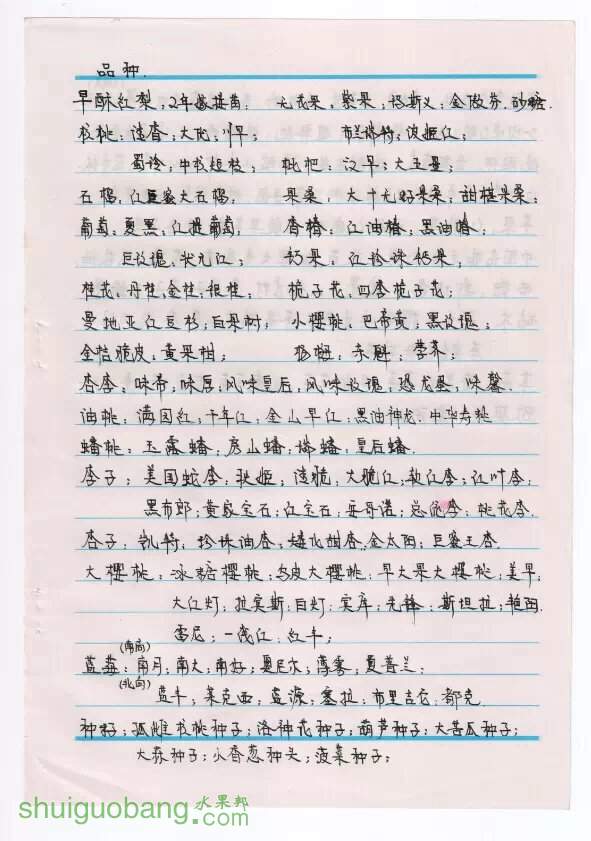 品种.
早酥红梨;2年嫁接苗. 无花果;紫果;玛斯义;金傲芬.砂糖.
书桃;清香;大陀;川早; 布兰瑞特;波姬红;
蜀玲;中书短枝; 枇杷:汉早;大五星;
石榴,红巨蜜大石榴, 果桑,大十无籽果桑,甜椹果桑;
葡萄;夏黑,红提葡萄, 香椿;红油椿,黑油椿,
巨玫瑰,状元红; 奶果,红珍珠奶果,
桂花,丹桂,金桂;银桂; 栀子花,四季栀子花;
曼地亚红豆杉;白果树; 小樱桃,巴帝黄;黑玫瑰;
金桔脆皮;黄果柑; 杨梅;东魁;荸荠;
杏李;味帝;味厚;风味皇后,风味玫瑰,恐龙蛋,味馨.
油桃;满园红,千年红,金山早红;黑油神龙.中华寿桃
蟠桃:玉露蟠;房山蟠,瑞蟠;皇后蟠.
李子:美国蛇李,耿姬;清脆;大脆红;秋红李;红叶李,
黑布郎;黄家宝石;红宝石;安哥诺;总统李;桃花李.
杏子:凯特;珍珠油杏;矮化甜杏.金太阳;巨蜜王杏.
大樱桃:冰糖樱桃;乌皮大樱桃;早大果大樱桃;美早;
大红灯;拉宾斯;白灯;宾库;先锋;斯坦拉;艳阳.
雷尼;一线红;红丰;
(南高)
蓝莓:南月;南大;南好;夏尼尔;薄雾;夏普兰;
(北高)
蓝丰;莱克西;蓝源;塞拉;布里吉它;都克
种籽;孤雌书桃种子;洛神花种子;葫芦种子;大苦瓜种子;
大蒜种子;小香葱种头;菠菜种子;
水果邦
shuiguobang.com